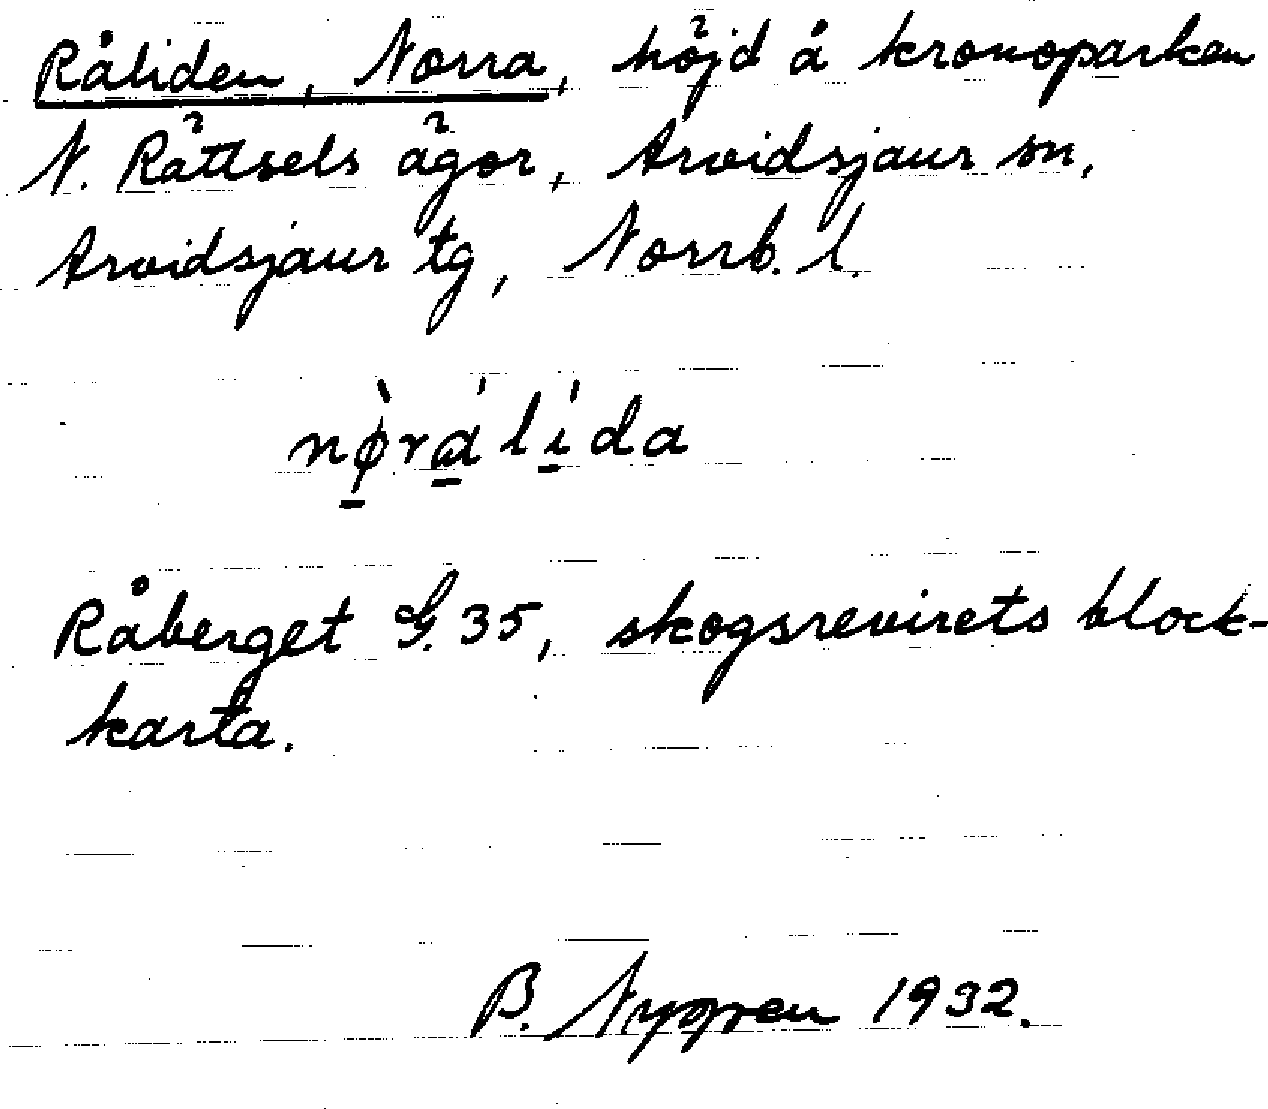 Råliden, Norra, höjd å kronoparken
N. Rättsels ägor, Arvidsjaur sn,
Arvidsjaur tg, Norrb. l.
nø̀rálída
Råberget G. 35, skogsrevirets block-
karta.
B. Nygren 1932.